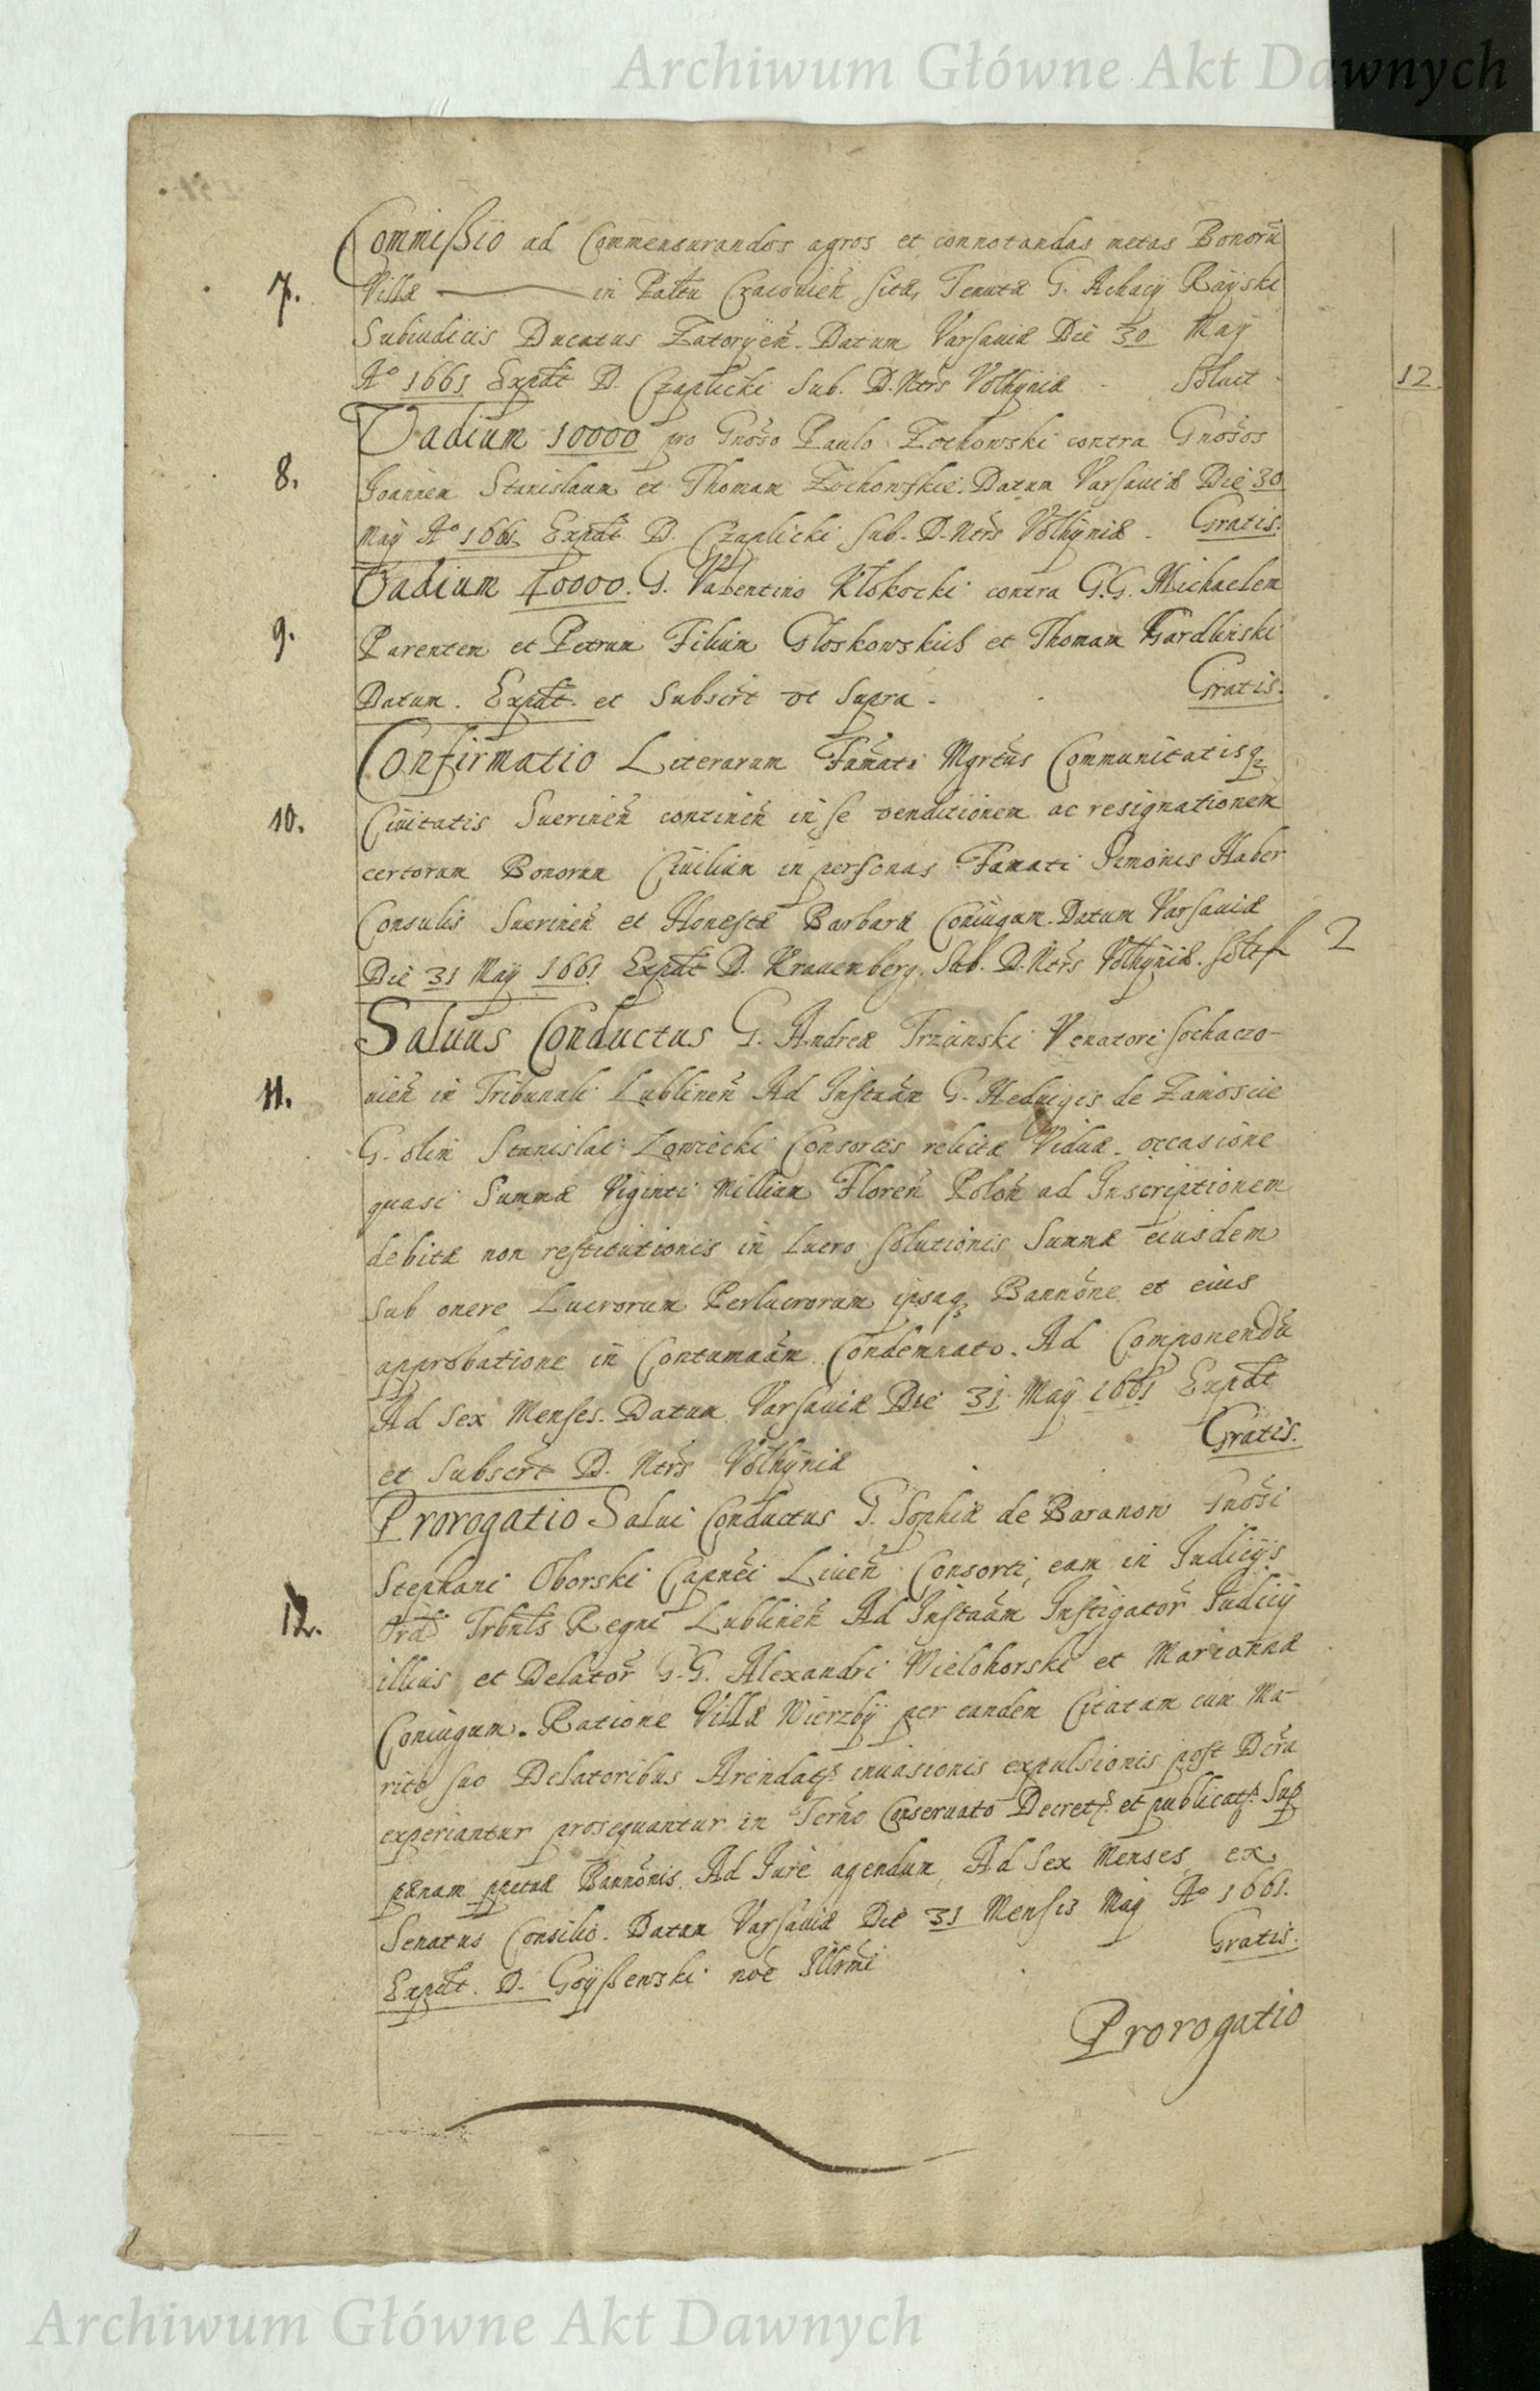 Archiwum Główne Akt Dawnych
Commissio ad Commensurandos agros et connotandas metas Bonorū
7. Villæ ——— in Palttu Czacovien̄ sitæ, Tenutæ G. Achacij Rayski
Subiudicis Ducatus Zatoryen̄. Datum Varsaviæ Die 30 Maÿ
Aº 1661 Expdt D. Czaplicki Sub. D. Ntrs Volhyniæ - Soluit - 12.
Vadium 10000 pro Gnoso Paulo Zochowski contra Gnosos
8. Joannem Stanislaum et Thomam Zochowskie. Datum Varsaviæ Die 30
Maÿ Aº 1661 Expdt D. Czaplicki Sub. D. Ntrs Volhyniæ - Gratis.
Vadium 10000. G. Valentino Klokocki contra G.G. Michaelem
9. Parentem et Petrum Filium Gloskowskies et Thomam Gardlinski
Datum. Expdt. et Subscrt vt Supra - Gratis.
Confirmatio Literarum Famati Mgrtus Communitatisq3
10. Civitatis Suerinen̄ continen̄ in se venditionem ac resignationem
certorum Bonorum Civilium in personas Famati Simonis Haber
Consulis Suerinen̄ et Honestæ Barbaræ Coniugum. Datum Varsaviæ
Die 31 Maÿ 1661 Expdt D. Krauenberg. Sub. D. Ntrs Volhyniæ. Solt f 2
Saluus Conductus G. Andreæ Trzinski Venatori Sochaczo-
11. uien̄ in Tribunali Lublinen̄ Ad Instnām G. Hedvigis de Zamoscie
G. olim Stanislai Lowiecki Consortis relictæ Viduæ. occasione
quasi Summæ Viginti Millium Floren̄ Polon̄ ad Inscriptionem
debitæ non restitutionis in lucro solutionis Summæ eiusdem
sub onere Lucrorum Perlucrorum ipsaq3 Bannōne et eius
approbatione in Contumaām Condemnato. Ad Componendū
Ad Sex Menses. Datum Varsaviæ Die 31 Maÿ 1661 Expdt
et Subscrt D. Ntrs Volhyniæ Gratis.
Prorogatio Salui Conductus G. Sophiæ de Baranow Gnosi
Stephani Oborski Capnei Liuen̄ Consorti, eam in Iudicÿs
12. Ord Trbnls Regni Lublinen̄ Ad Instaām Instigator Iudicÿ
illius et Delator G.G. Alexandri Wielohorski et Mariannæ
Coniugum. Ratione Villæ Wierzbÿ per eandem Citatam cum Ma-
rito suo Delatoribus Arendat. inuasionis expulsionis post Dcra
experiantur prosequantur in Termo Conseruato Decret. et publicat. Sup
pænam ppetuæ Bannōnis. Ad Iure agendum, Ad Sex Menses ex
Senatus Consilio. Datum Varsaviæ Die 31 Mensis Maÿ Aº 1661.
Expdt. D. Goÿssenski noe Illrmi Gratis.
Prorogatio
Archiwum Główne Akt Dawnych